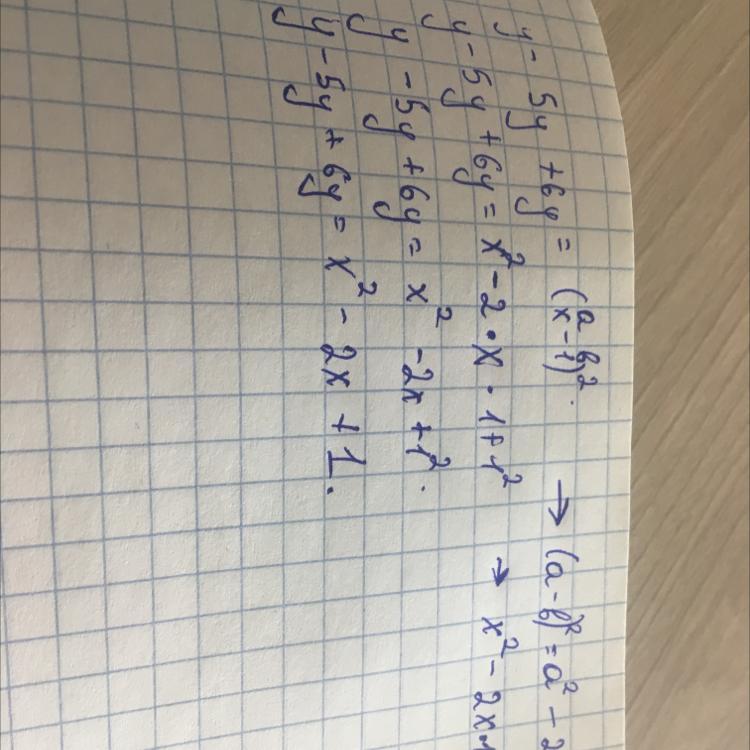 y - 5y + 6y = (x - 1)². → (a - b)² = a² - 2
a b
y - 5y + 6y = x² - 2 · x · 1 + 1² → x² - 2x
y - 5y + 6y = x² - 2x + 1².
y - 5y + 6y = x² - 2x + 1.